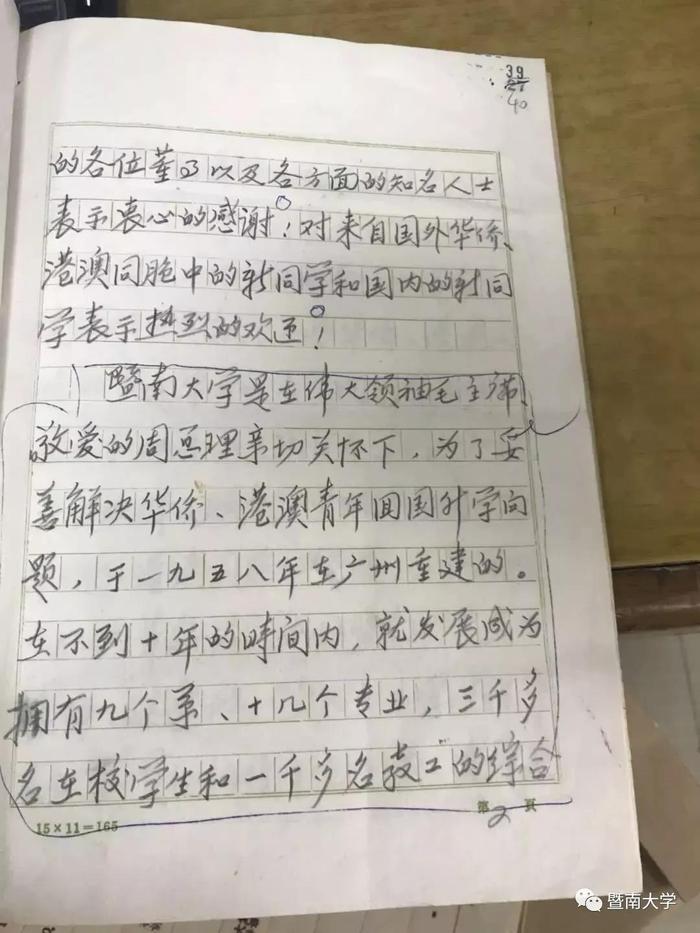 39
40
的各位董事以及各方面的知名人士
表示衷心的感谢！对来自国外华侨、
港澳同胞中的新同学和国内的新同
学表示热烈的欢迎！
暨南大学是在伟大领袖毛主席、
敬爱的周总理亲切关怀下，为了妥
善解决华侨、港澳青年回国升学问
题，于一九五八年在广州重建的。
在不到十年的时间内，就发展成为
拥有九个系、十几个专业，三千多
名在校学生和一千多名教工的综合
15×11=165
第2頁
暨南大学